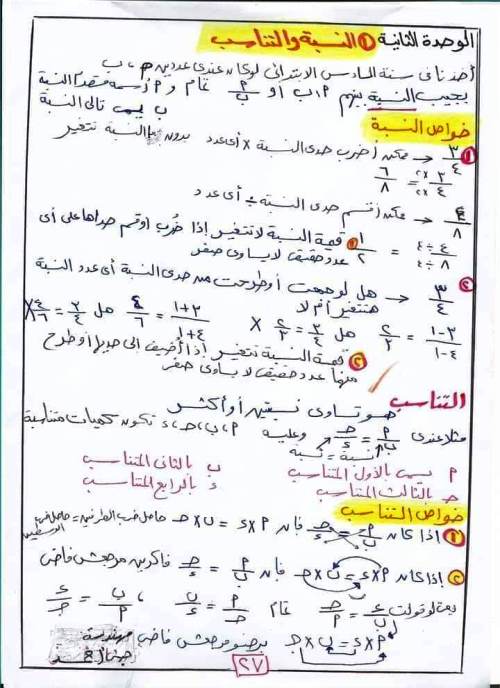 الوحدة الثانية ① النسبة والتناسب
أخدنا فى سنة السادس الابتدائى لو كان عندى عددين م ، ب
بجيب النسبة بينهم م : ب أو م/ب تمام و م اسمه مقدم النسبة
ب يسمى تالى النسبة
خواص النسبة
① ٣/٤ ← ممكن أضرب حدى النسبة × أى عدد بدون ما النسبة تتغير
٣×٢/٤×٢ = ٦/٨
٤/٨ ← ممكن أقسم حدى النسبة ÷ أى عدد
٤÷٤/٨÷٤ = ١/٢ ① قيمة النسبة لا تتغير إذا ضُرب أو قسم حداها على أى
عدد حقيقى لا يساوى صفر
② ٣/٤ ← هل لو جمعت أو طرحت من حدى النسبة أى عدد النسبة
هتتغير أم لا
٣-١/٤-١ = ٢/٣ هل ٣/٤ = ٢/٣ × ٣+١/٤+١ = ٤/٦ هل ٣/٤ = ٤/٦ ×
② قيمة النسبة تتغير إذا أضيف إلى حديها أو طرح
منها عدد حقيقى لا يساوى صفر
التناسب هو تساوى نسبتين أو أكثر
مثلا عندى م/ب = حـ/ء وعليه م ، ب ، حـ ، ء تكون كميات متناسبة
نسبة = نسبة
م يسمى بالأول المتناسب ب بالثانى المتناسب
حـ بالثالث المتناسب ء بالرابع المتناسب
خواص التناسب
① إذا كان م/ب = حـ/ء فإن م × ء = ب × حـ حاصل ضرب الطرفين = حاصل ضرب الوسطين
② إذا كان م × ء = ب × حـ فإن م/ب = حـ/ء
يعنى لو قولت م/حـ = ب/ء تمام م/حـ = ب/ء ، ب/م = ء/حـ
م × ء = ب × حـ برضو
٢٧